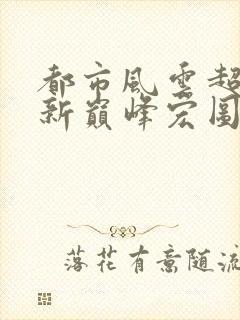 都市風雲超
新巔峰宏圖
落花有意随流